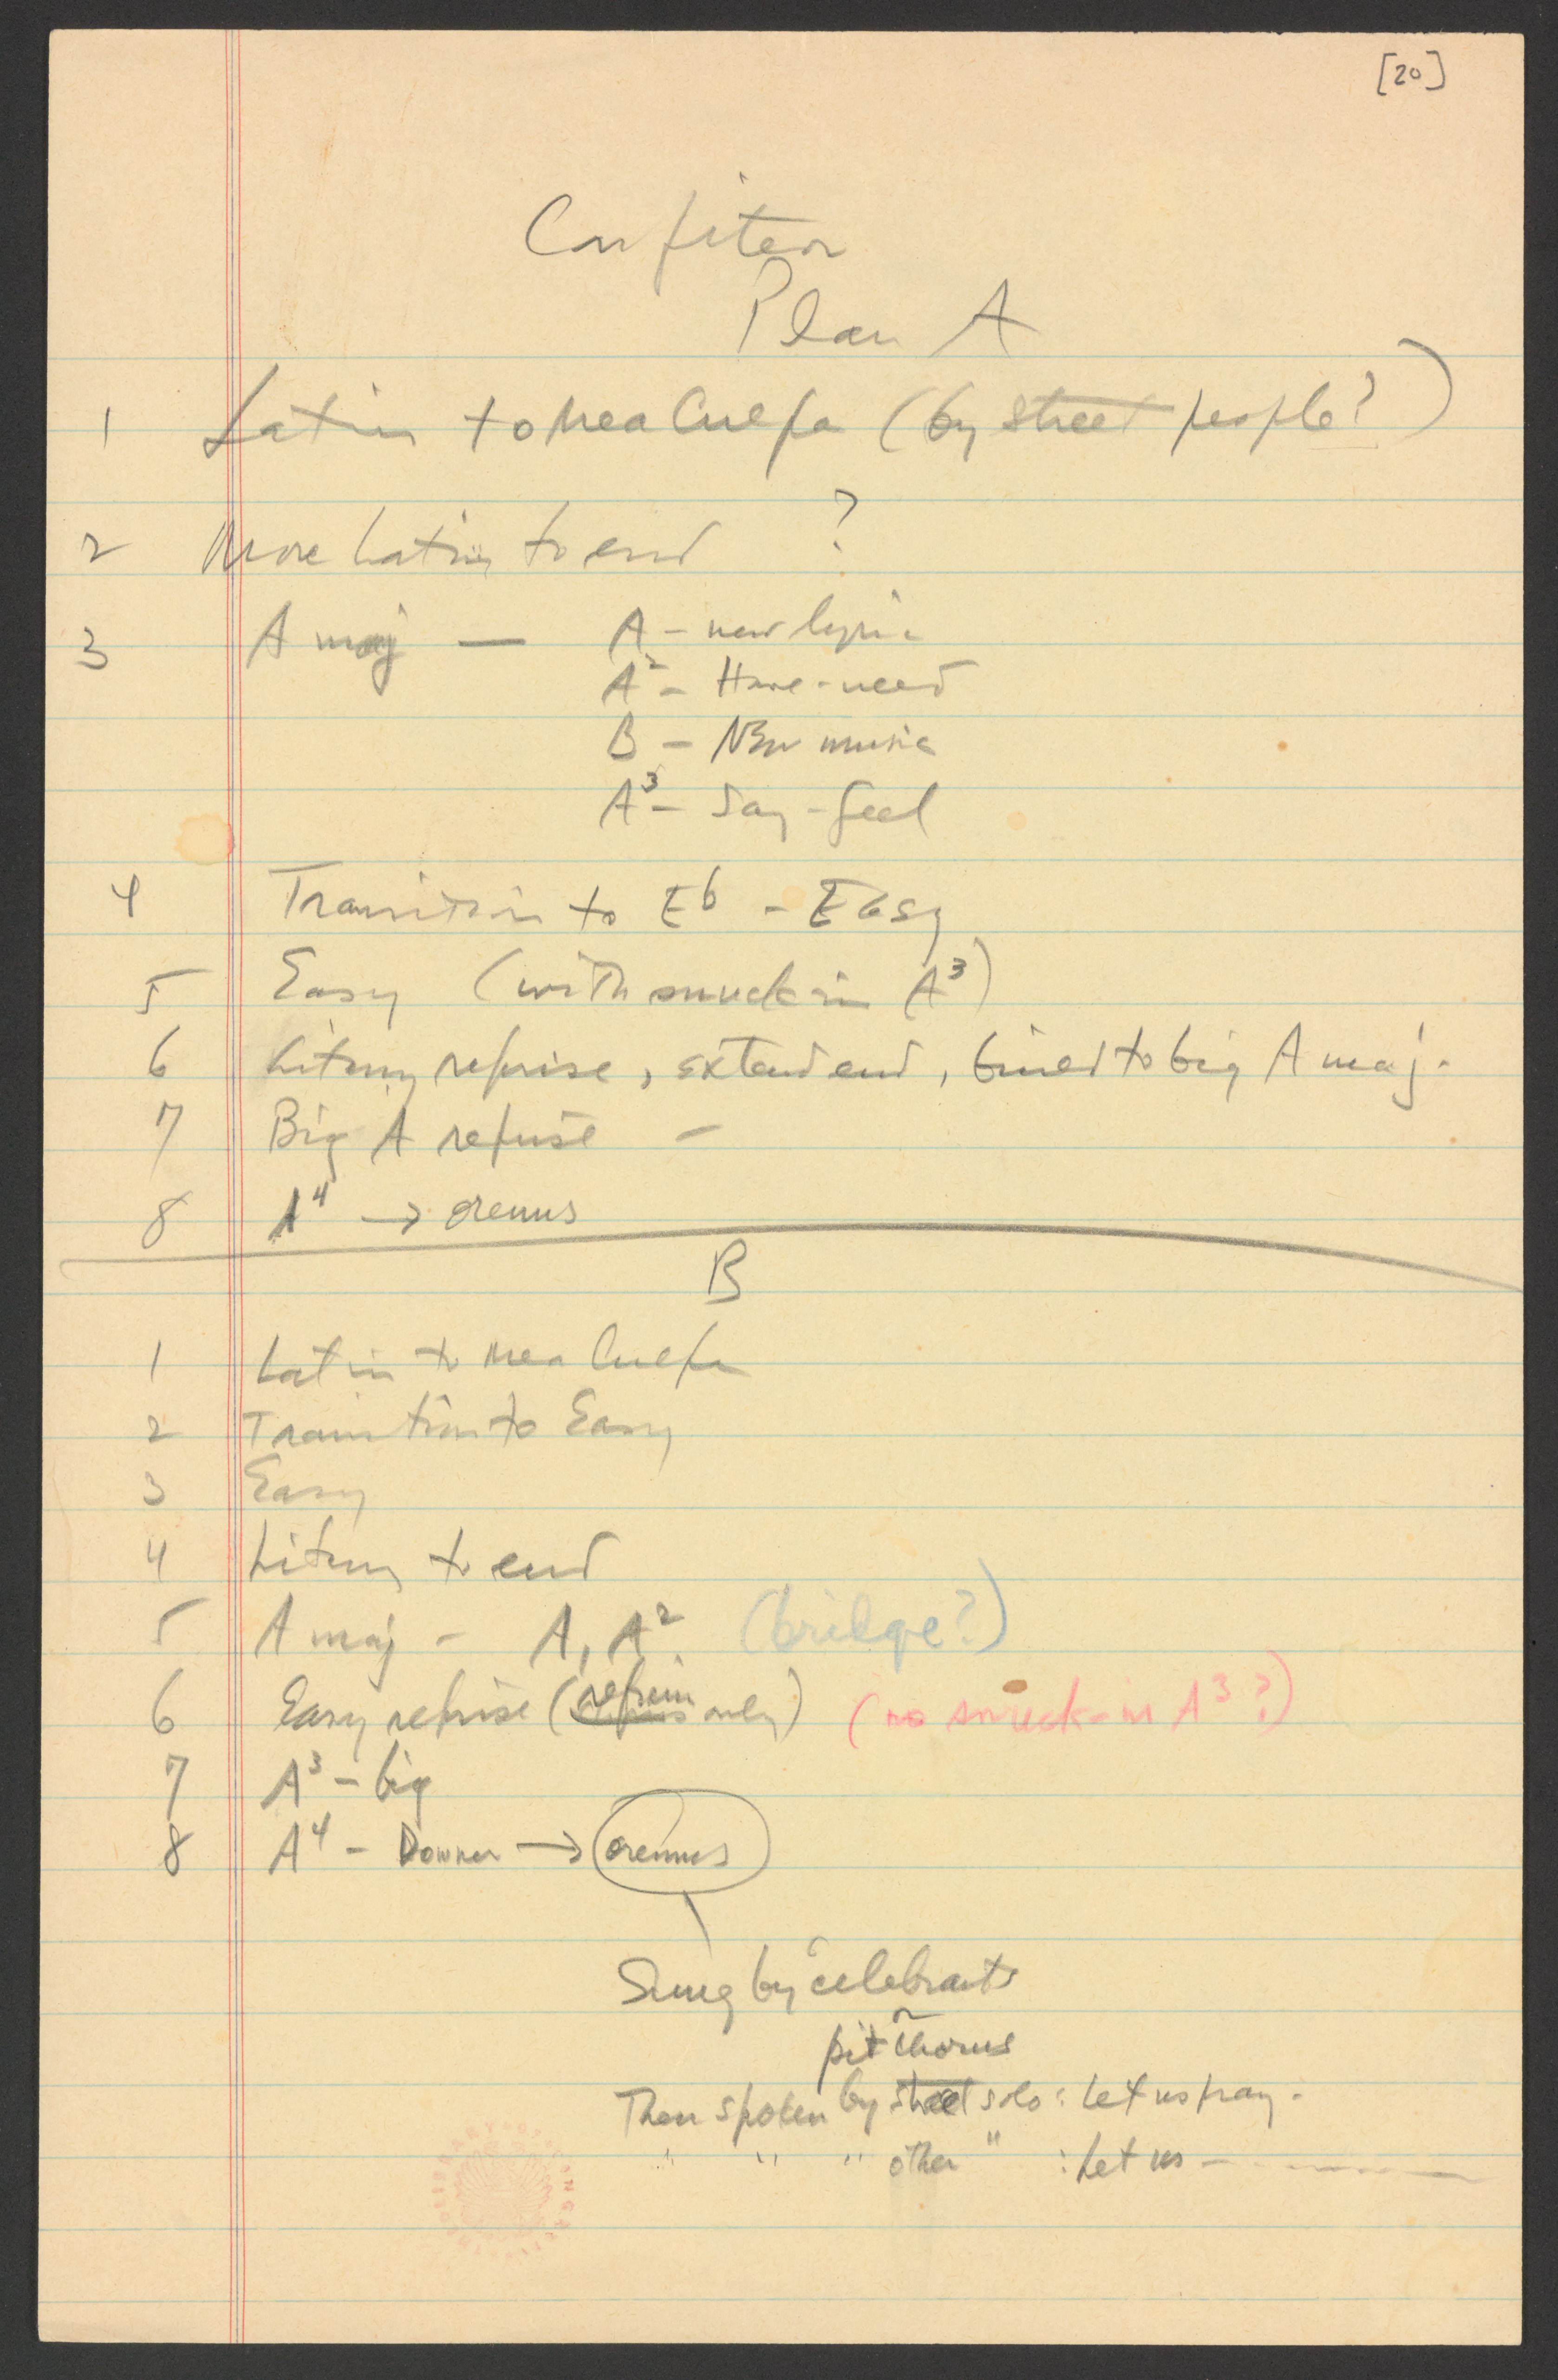 [20]
Confiteor
Plan A
1 Latin to Mea Culpa (by street people?)
2 More Latin to end ?
3 A maj — A - new lyric
A² - Have-need
B - New music
A³ - Say-feel
4 Transition to E♭ - Easy
5 Easy (with snuck-in A³)
6 Litany reprise, extend end, build to big A maj.
7 Big A reprise -
8 A⁴ → oremus
B
1 Latin to Mea Culpa
2 Transition to Easy
3 Easy
4 Litany to end
5 A maj - A, A² (bridge?)
6 Easy reprise (refrain only) (no snuck-in A³?)
7 A³ - big
8 A⁴ - Downer → oremus
Sung by celebrants
pit chorus
Then spoken by street solo : Let us pray.
" " " other " : Let us -------